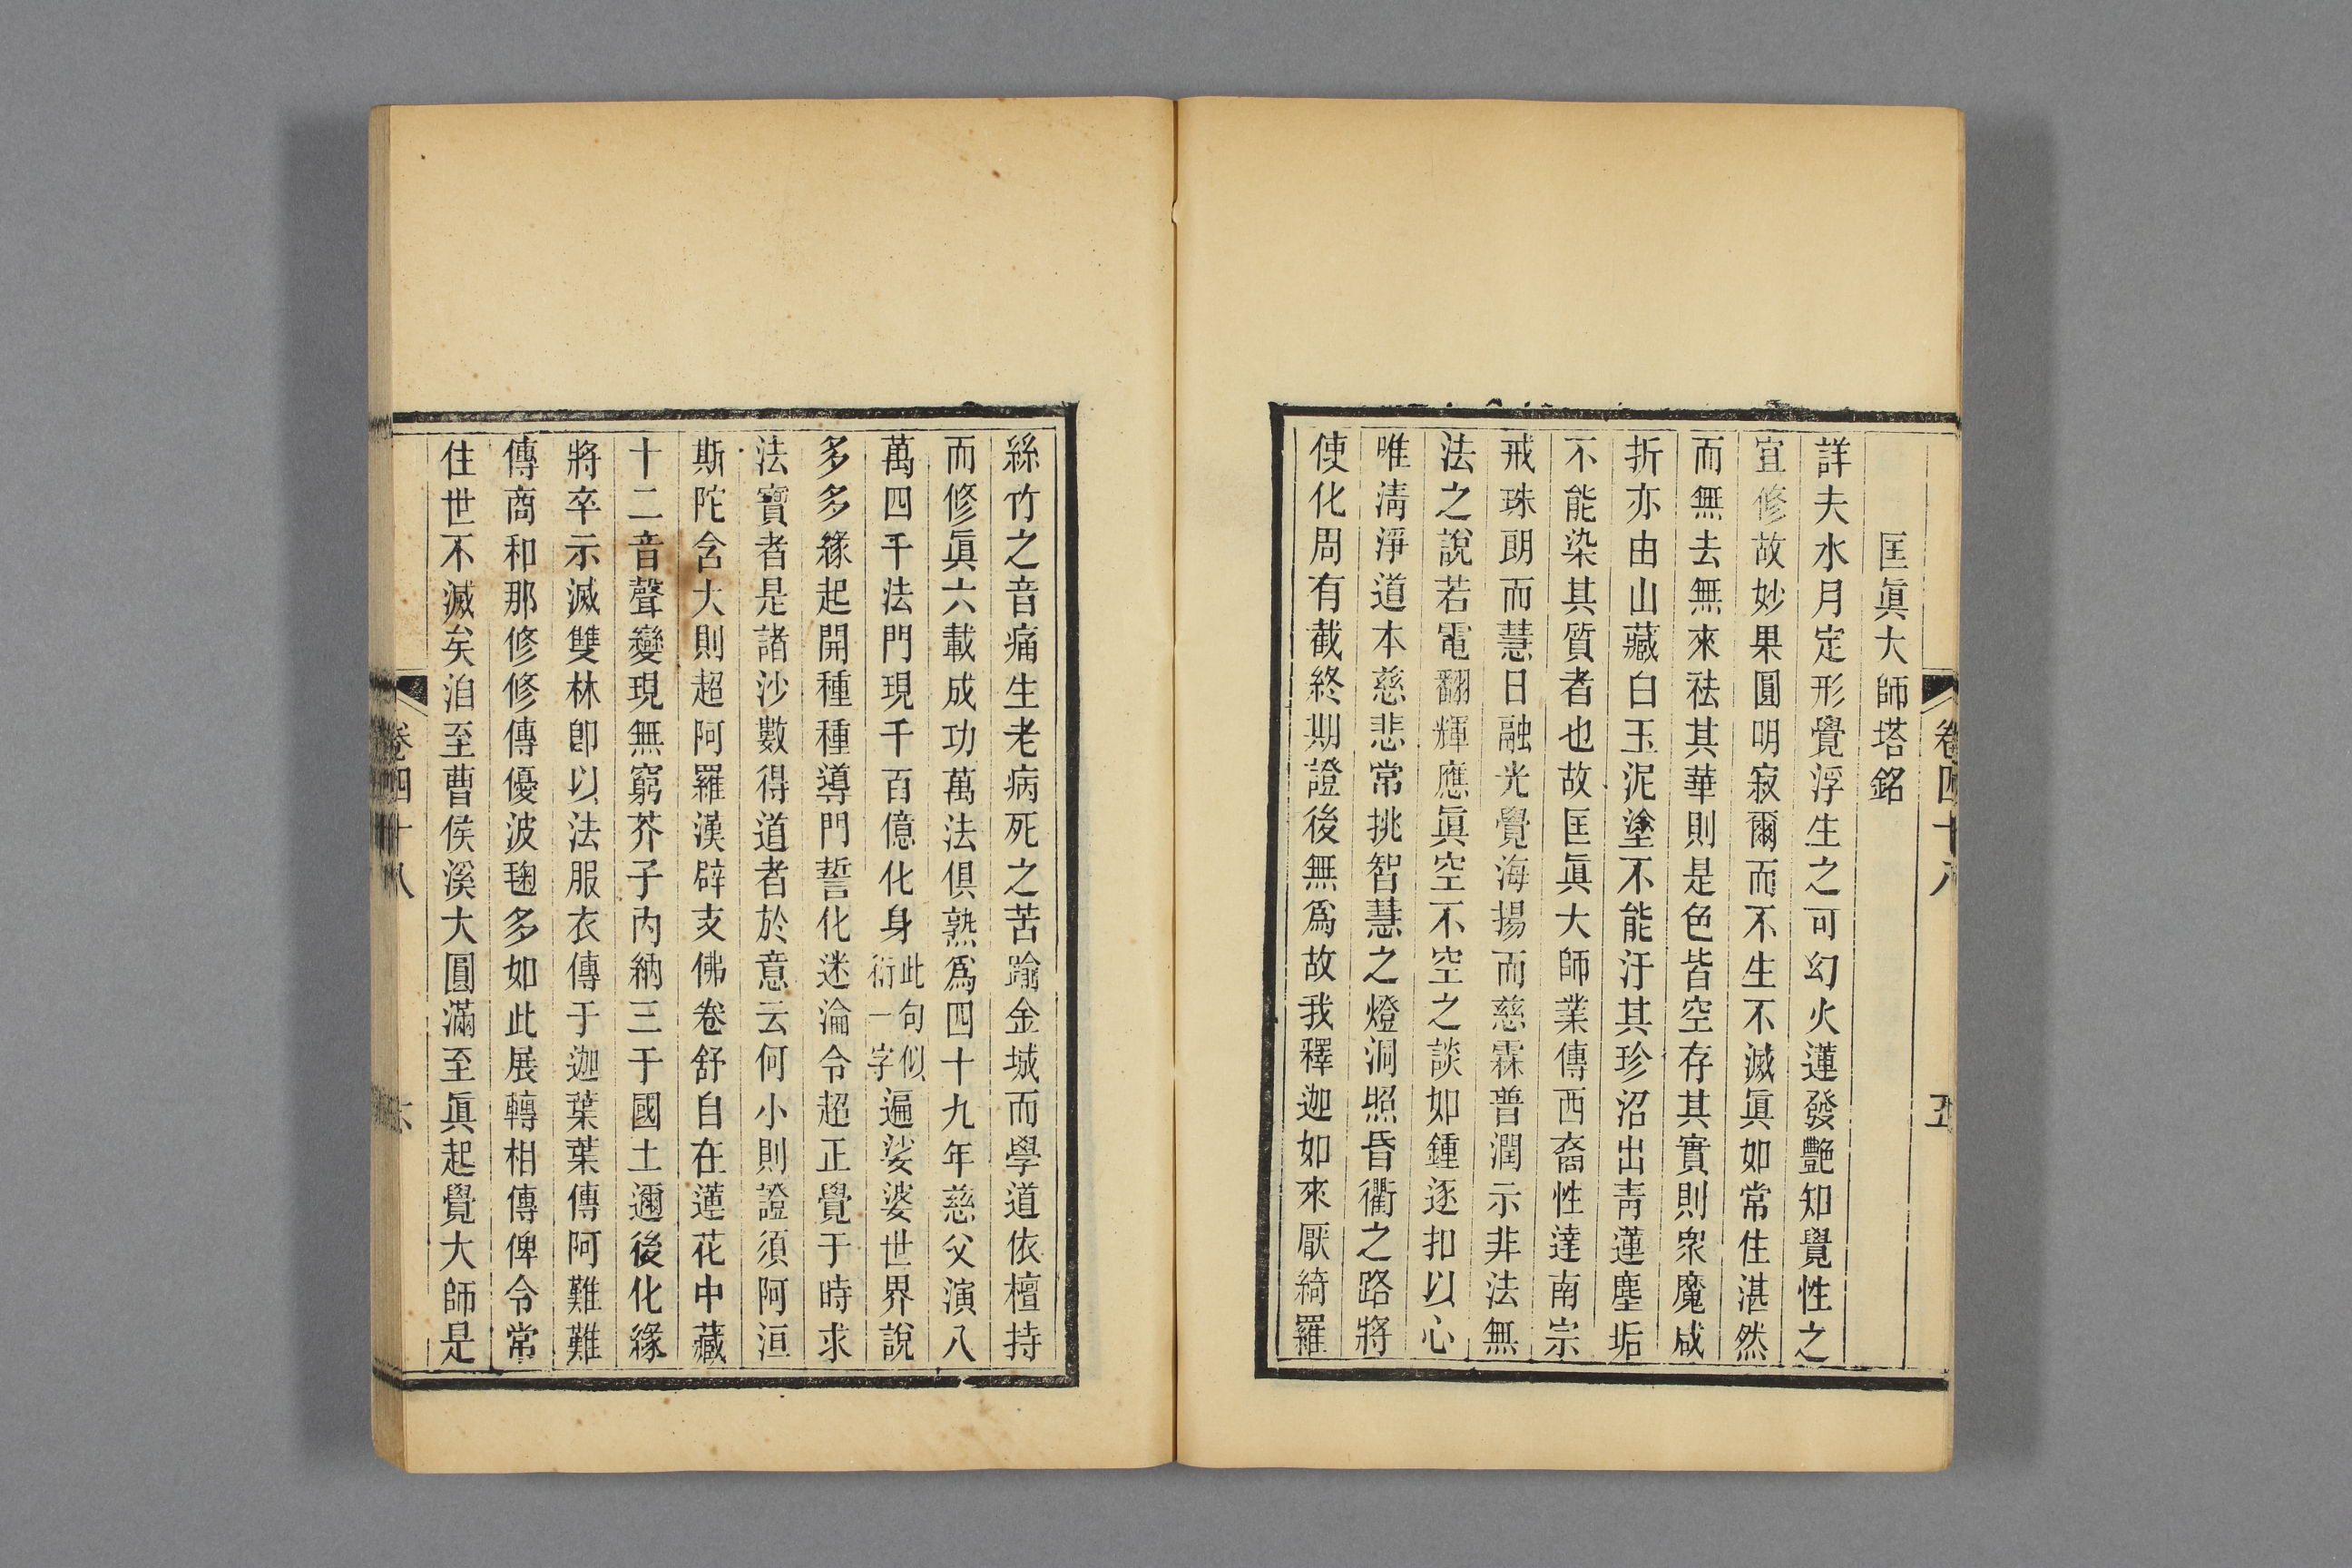 卷四十八
五
匡眞大師塔銘
詳夫水月定形覺浮生之可幻火蓮發艷知覺性之
宜修故妙果圓明寂爾而不生不滅眞如常住湛然
而無去無來袪其華則是色皆空存其實則衆魔咸
折亦由山藏白玉泥塗不能汙其珍沼出靑蓮塵垢
不能染其質者也故匡眞大師業傳西裔性達南宗
戒珠朗而慧日融光覺海揚而慈霖普潤示非法無
法之說若電翻輝應眞空不空之談如鍾逐扣以心
唯淸淨道本慈悲常挑智慧之燈洞照昏衢之路將
使化周有截終期證後無爲故我釋迦如來厭綺羅
絲竹之音痛生老病死之苦踰金城而學道依檀持
而修眞六載成功萬法俱熟爲四十九年慈父演八
萬四千法門現千百億化身此句似衍一字遍娑婆世界說
多多緣起開種種導門誓化迷淪令超正覺于時求
法寶者是諸沙數得道者於意云何小則證須阿洹
斯陀含大則超阿羅漢辟支佛卷舒自在蓮花中藏
十二音聲變現無窮芥子內納三于國土邇後化緣
將卒示滅雙林卽以法服衣傳于迦葉葉傳阿難難
傳商和那修修傳優波毱多如此展轉相傳俾令常
住世不滅矣洎至曹侯溪大圓滿至眞起覺大師是
卷四十八
六